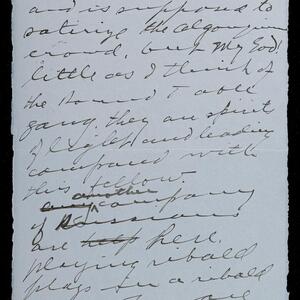 and is supposed to
satirize the Algonquin
crowd, but My God!
little as I think of
the Round Table
gang they are spirits
of light and leading
compared with
this fellow.
another
company
of Russians
are here.
playing ribald
plays in a ribald